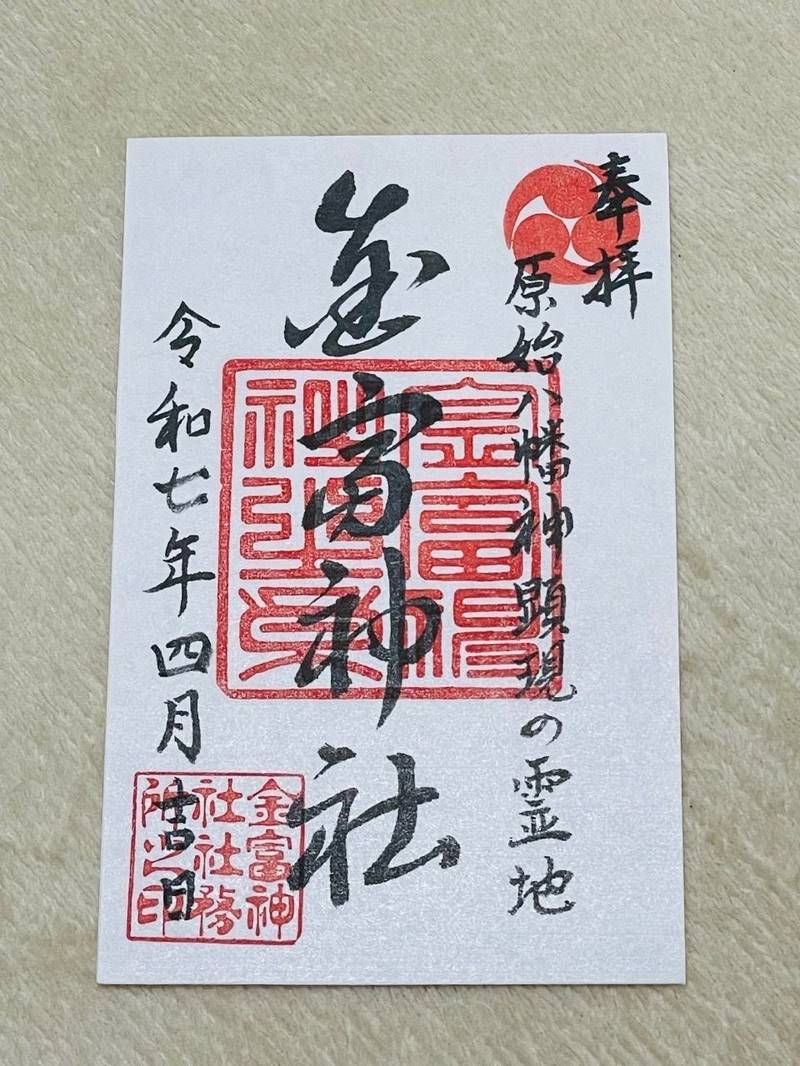 奉拝
原始八幡神顕現の霊地
金富神社
令和七年四月吉日
金富神
社社務
所之印